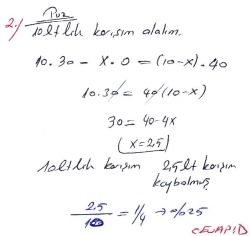 2./
10 lt lik karışım alalım.
10.30 - x.0 = (10-x).40
10.30 = 40(10-x)
30 = 40-4x
(x=2.5)
10 lt lik karışım 2,5 lt karışım
kaybolmuş
2.5/10 = 1/4 → %25
CEVAP D